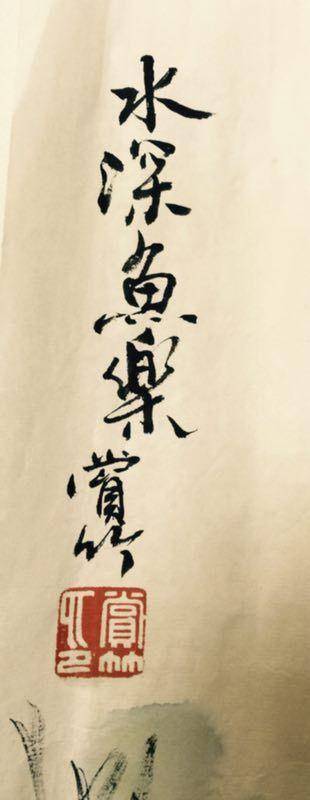 水深魚樂
賞竹
賞竹之印